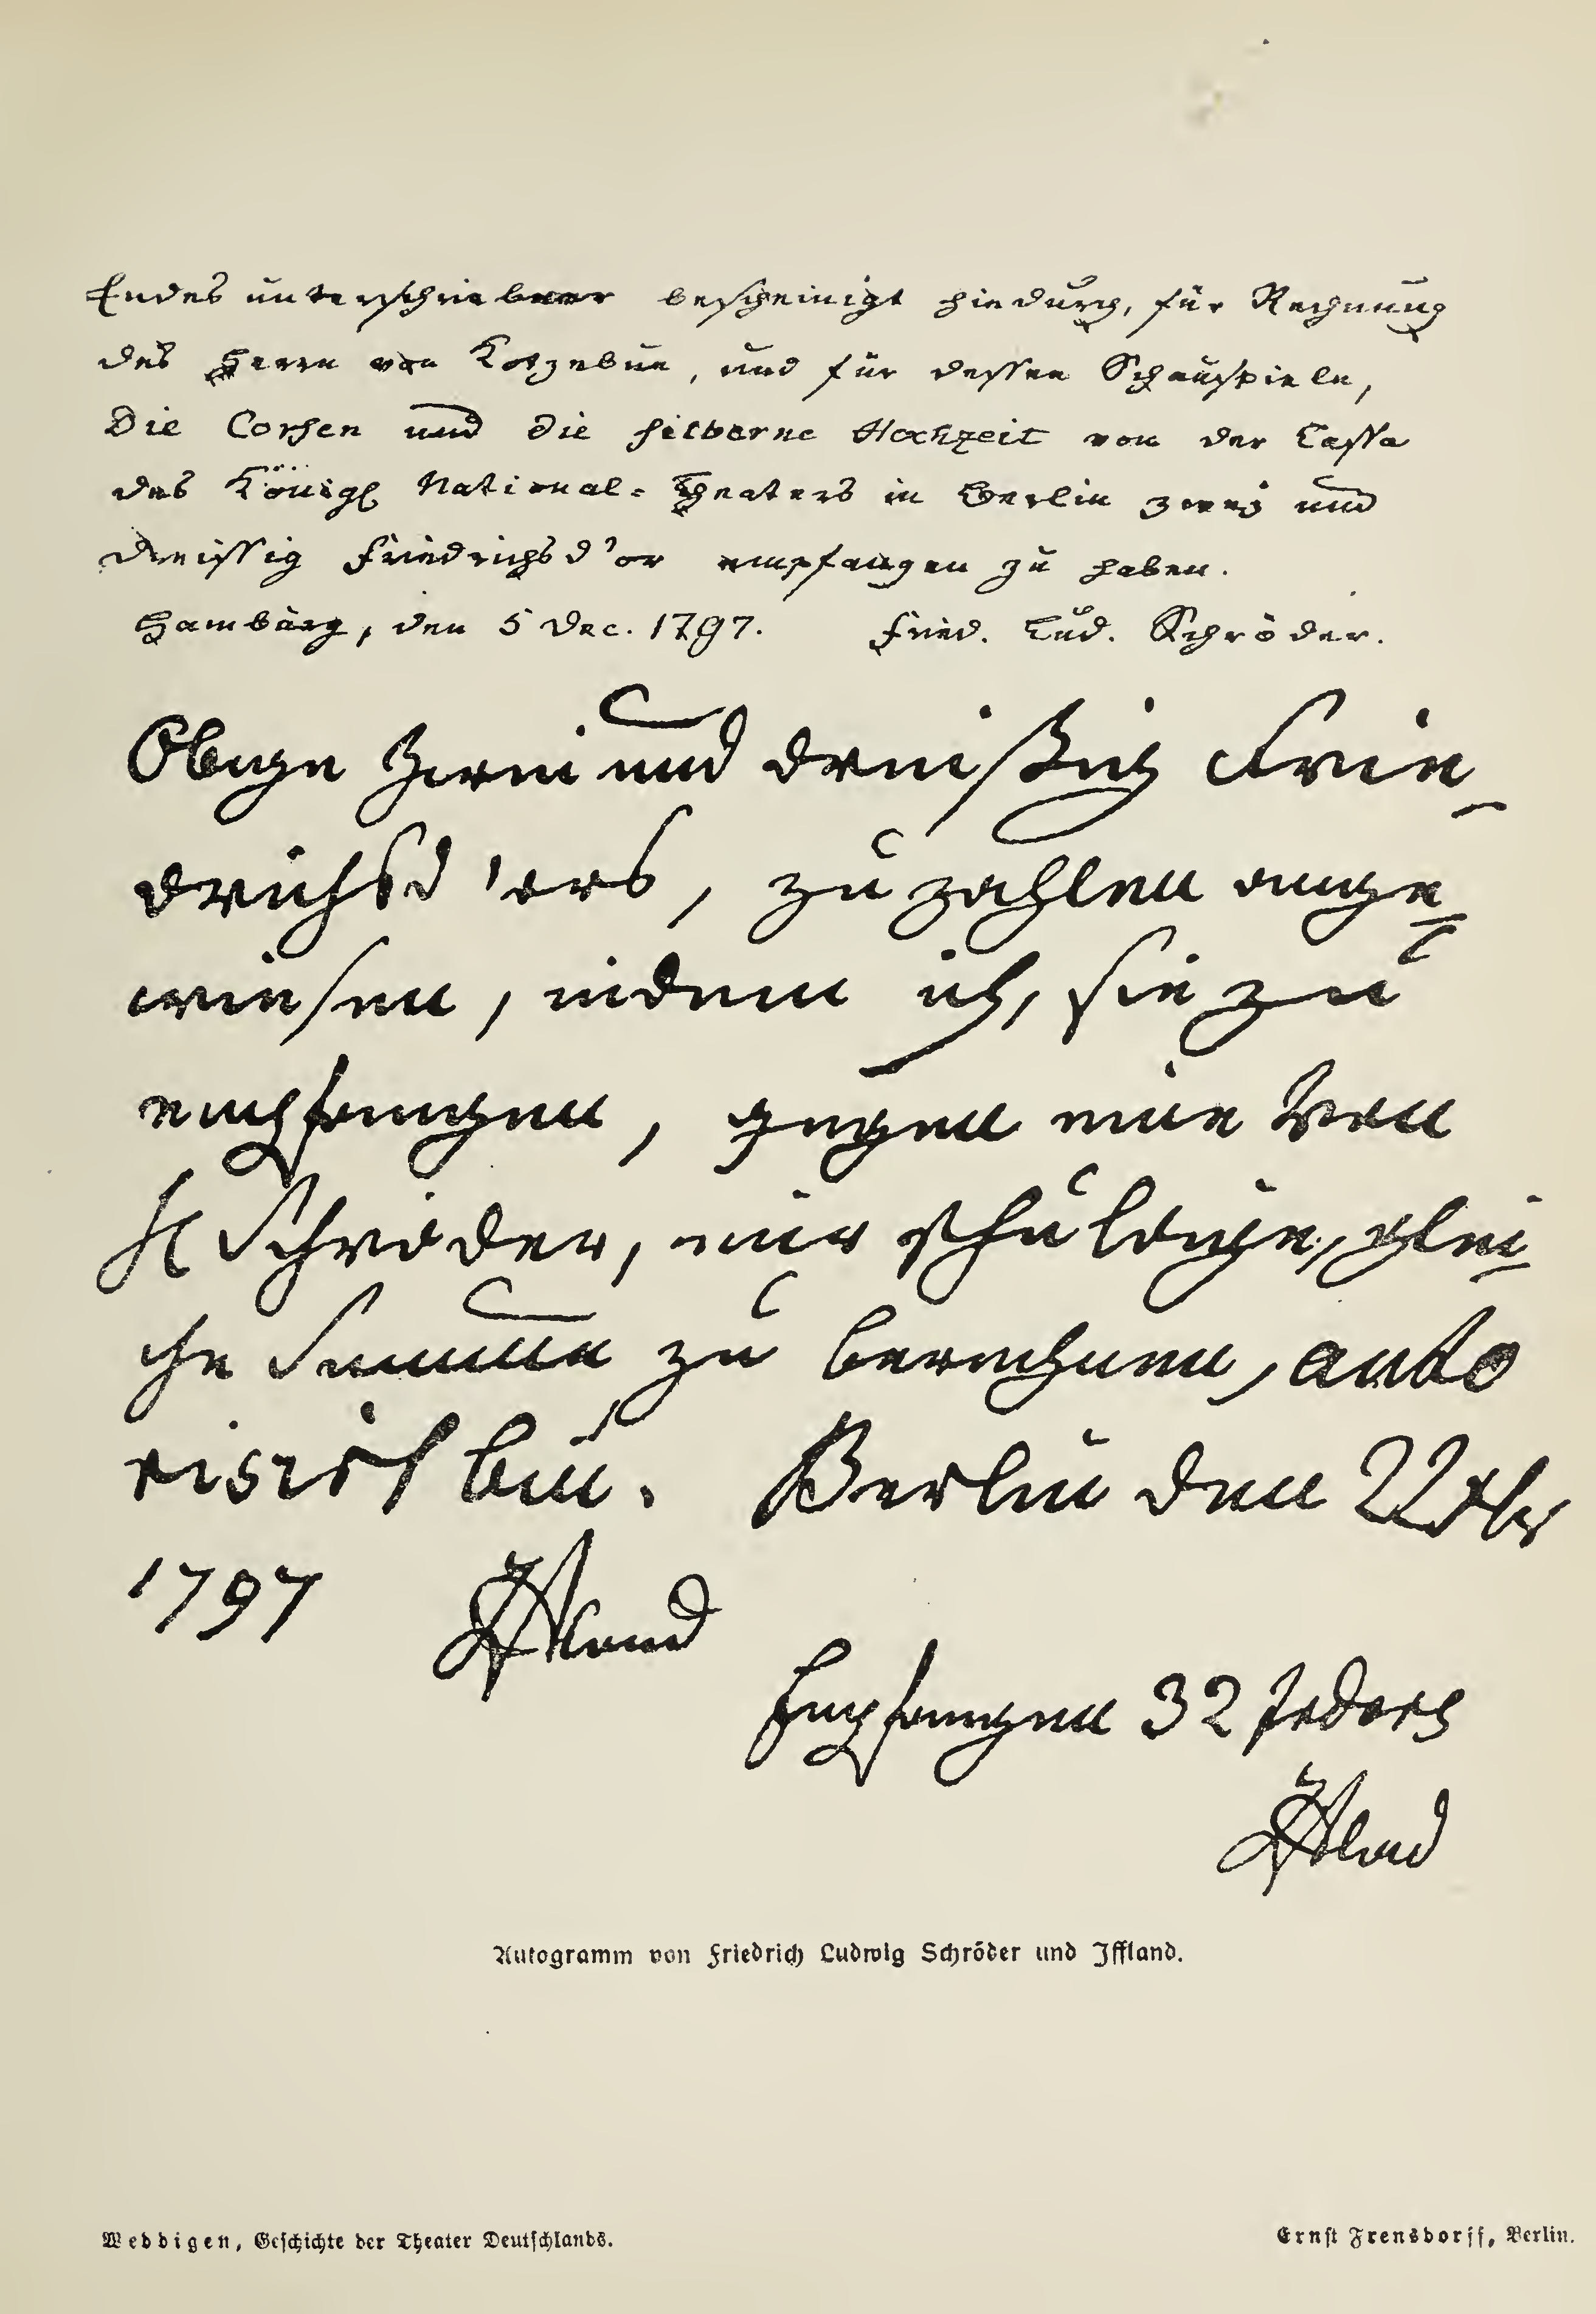 Endes unterschriebner bescheinigt hiedurch, für Rechnung
des Herrn von Kotzebue, und für dessen Schauspiele,
Die Corsen und die silberne Hochzeit von der Cassa
des Königl National-Theaters in Berlin zwei und
dreissig Friedrichsd'or empfangen zu haben.
Hamburg, den 5 Dec. 1797. Fried. Lud. Schröder.
Obige Zwei und dreißig Frie-
drichsd'ors, zu zahlen ange-
wiesen, indem ich, sie zu
empfangen, gegen eine von
H Schröder, mir schuldige, glei-
che Summe zu berechnen, auto
risirt bin. Berlin den 22
1797 Iffland
Empfangen 32 frdors
Iffland
Autogramm von Friedrich Ludwig Schröder und Iffland.
Weddigen, Geschichte der Theater Deutschlands.
Ernst Frensdorff, Berlin.